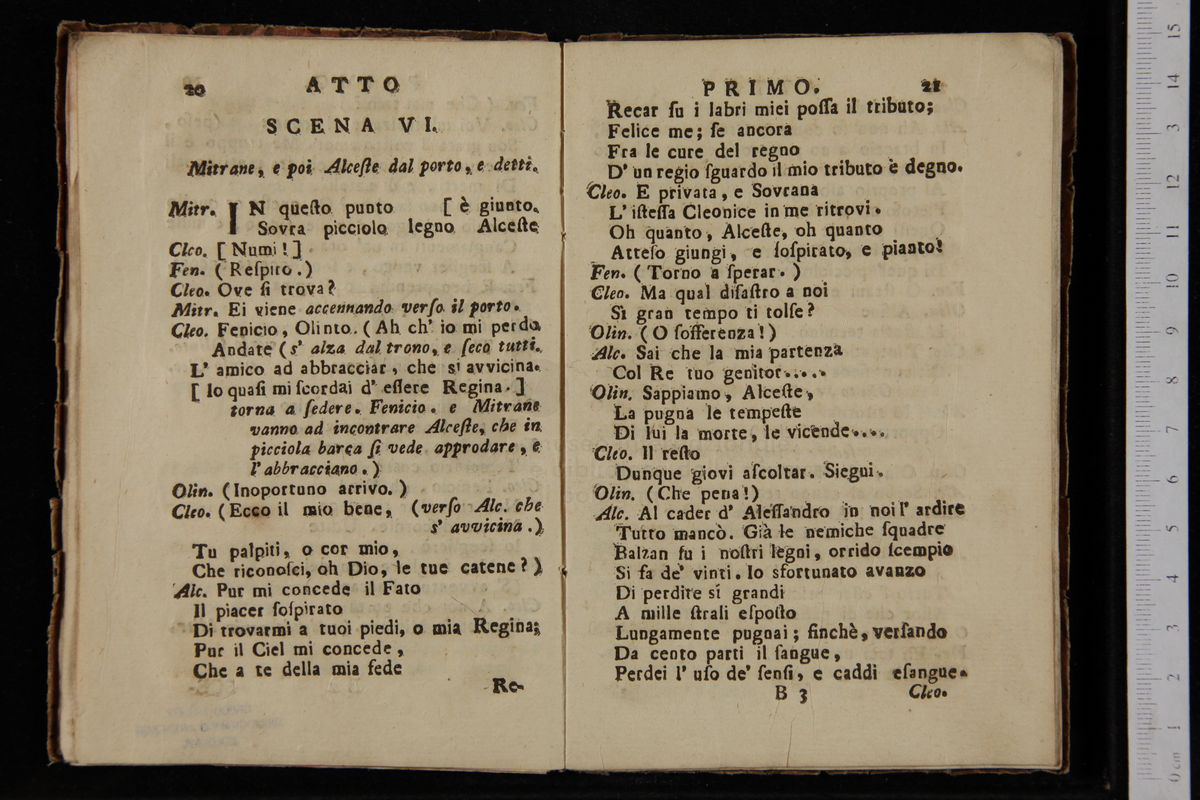 20 ATTO
SCENA VI.
Mitrane, e poi Alceſte dal porto, e detti.
Mitr. IN queſto punto [ è giunto.
Sovra picciolo legno Alceſte
Cleo. [ Numi ! ]
Fen. ( Reſpiro. )
Cleo. Ove ſi trova?
Mitr. Ei viene accennando verſo il porto.
Cleo. Fenicio, Olinto. ( Ah ch' io mi perdo.
Andate ( s' alza dal trono, e ſeco tutti.
L' amico ad abbracciar, che si avvicina.
[ Io quaſi mi ſcordai d' eſſere Regina. ]
torna a ſedere. Fenicio. e Mitrane
vanno ad incontrare Alceſte, che in
picciola barca ſi vede approdare, e
l' abbracciano. )
Olin. ( Inoportuno arrivo. )
Cleo. ( Ecco il mio bene, ( verſo Alc. che
s' avvicina. )
Tu palpiti, o cor mio,
Che riconoſci, oh Dio, le tue catene? )
Alc. Pur mi concede il Fato
Il piacer ſoſpirato
Di trovarmi a tuoi piedi, o mia Regina;
Pur il Ciel mi concede,
Che a te della mia fede
Re-
PRIMO. 21
Recar ſu i labri miei poſſa il tributo;
Felice me; ſe ancora
Fra le cure del regno
D' un regio ſguardo il mio tributo è degno.
Cleo. E privata, e Sovrana
L' iſteſſa Cleonice in me ritrovi.
Oh quanto, Alceſte, oh quanto
Atteſo giungi, e ſoſpirato, e pianto!
Fen. ( Torno a ſperar. )
Cleo. Ma qual diſaſtro a noi
Sì gran tempo ti tolſe?
Olin. ( O ſofferenza! )
Alc. Sai che la mia partenza
Col Re tuo genitor.....
Olin. Sappiamo, Alceſte,
La pugna le tempeſte
Di lui la morte, le vicende....
Cleo. Il reſto
Dunque giovi aſcoltar. Siegui.
Olin. (Che pena!)
Alc. Al cader d' Aleſſandro in noi l' ardire
Tutto mancò. Già le nemiche ſquadre
Balzan ſu i noſtri legni, orrido ſcempio
Si fa de' vinti. Io sfortunato avanzo
Di perdite sí grandi
A mille ſtrali eſpoſto
Lungamente pugnai; finchè, verſando
Da cento parti il ſangue,
Perdei l' uſo de' ſenſi, e caddi eſangue.
B 3 Cleo.